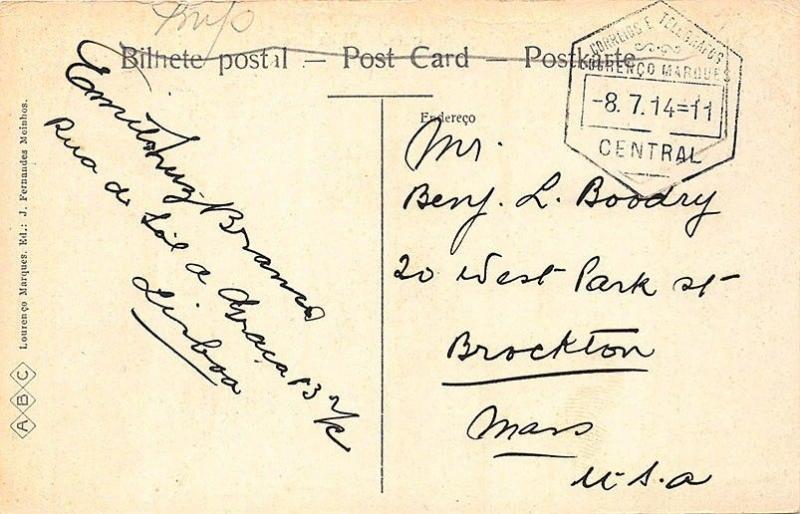 Bilhete postal — Post Card — Postkarte
CORREIOS E TELEGRAFOS
LOURENÇO MARQUES
-8.7.14=11
CENTRAL
Endereço
Mr.
Benj. L. Boodry
20 West Park st
Brockton
Mass
U.S.a
Branco
Rua do Sol a Graça 13
Lisboa
Lourenço Marques. Ed.: J. Fernandes Moinhos.
ABC